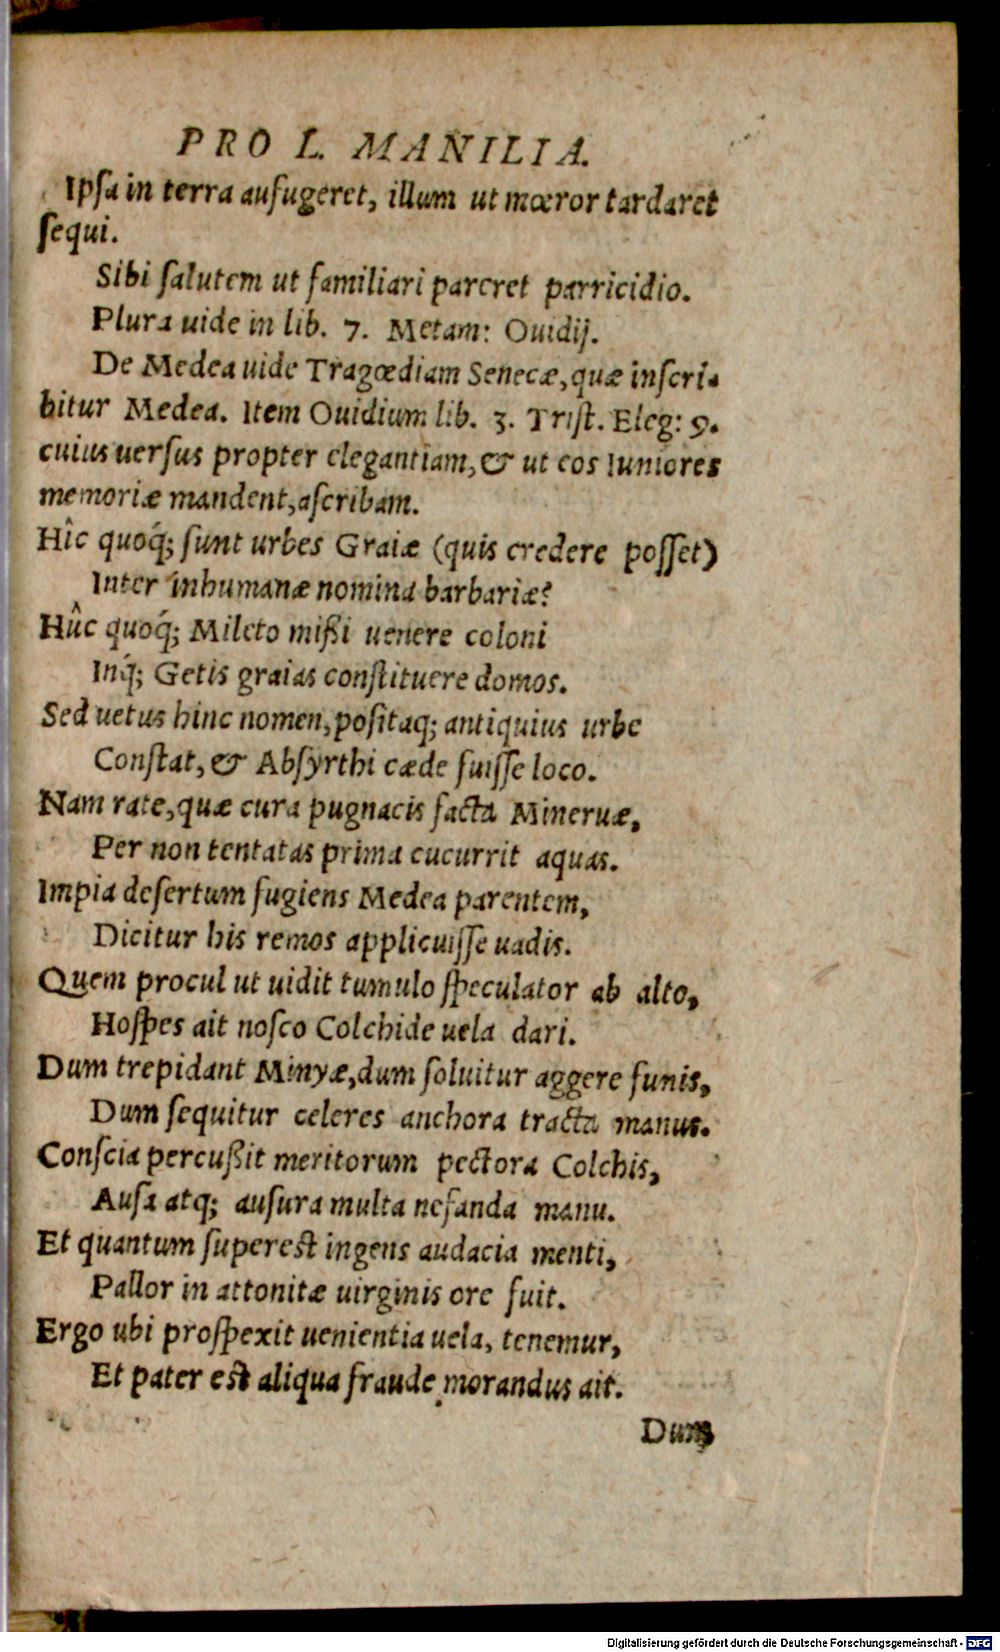 PRO L. MANILIA.
Ipſa in terra aufugeret, illum ut mœror tardaret
ſequi.
Sibi ſalutem ut familiari pareret parricidio.
Plura uide in lib. 7. Metam: Ouidij.
De Medea uide Tragœdiam Senecæ, quæ inſcri-
bitur Medea. Item Ouidium lib. 3. Triſt. Eleg: 9.
cuius uerſus propter elegantiam, & ut eos Iuniores
memoriæ mandent, aſcribam.
Hîc quoq́; ſunt urbes Graiæ (quis credere poſſet)
Inter inhumanæ nomina barbariæ?
Hûc quoq́; Mileto mißi uenere coloni
Inq́; Getis graias conſtituere domos.
Sed uetus hinc nomen, poſitaq; antiquius urbe
Conſtat, & Abſyrthi cæde fuiſſe loco.
Nam rate, quæ cura pugnacis facta Mineruæ,
Per non tentatas prima cucurrit aquas.
Impia deſertum fugiens Medea parentem,
Dicitur his remos applicuiſſe uadis.
Quem procul ut uidit tumulo ſpeculator ab alto,
Hoſpes ait noſco Colchide uela dari.
Dum trepidant Minyæ, dum ſoluitur aggere funis,
Dum ſequitur celeres anchora tracta manus.
Conſcia percußit meritorum pectora Colchis,
Auſa atq; auſura multa nefanda manu.
Et quantum ſupereſt ingens audacia menti,
Pallor in attonitæ uirginis ore fuit.
Ergo ubi proſpexit uenientia uela, tenemur,
Et pater eſt aliqua fraude morandus ait.
Dum
Digitalisierung gefördert durch die Deutsche Forschungsgemeinschaft - DFG